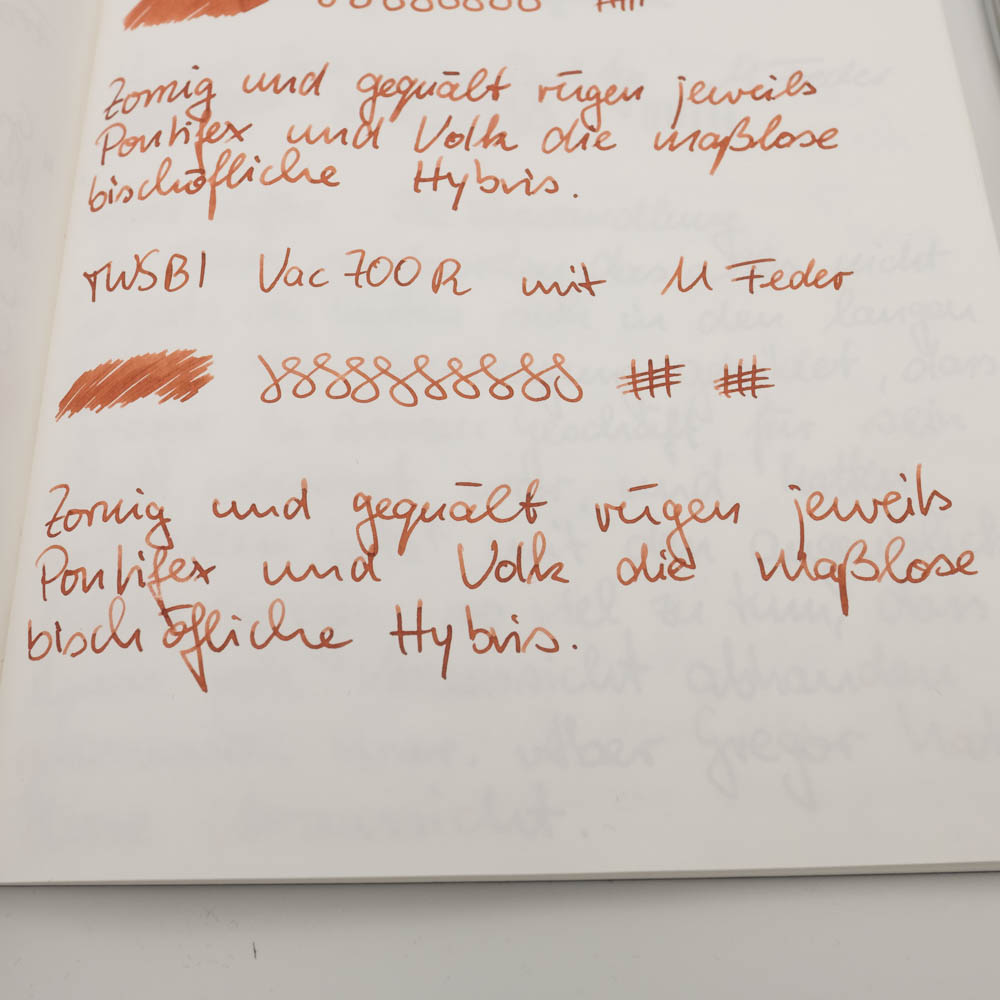 Zornig und gequält rügen jeweils
Pontifex und Volk die maßlose
bischöfliche Hybris.
TWSBI Vac 700 R mit M Feder
Zornig und gequält rügen jeweils
Pontifex und Volk die maßlose
bischöfliche Hybris.